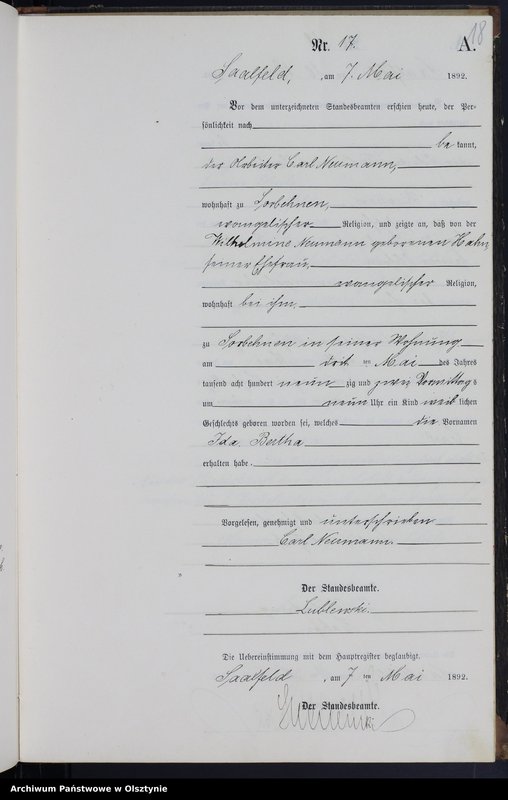 18
Nr. 17. A.
Saalfeld, , am 7. Mai 1892.
Vor dem unterzeichneten Standesbeamten erschien heute, der Per-
sönlichkeit nach
be kannt,
der Arbeiter Carl Neumann,
wohnhaft zu Sorbehnen,
evangelischer Religion, und zeigte an, daß von der
Wilhelmine Neumann geborenen Hahn,
seiner Ehefrau,
evangelischer Religion,
wohnhaft bei ihm
zu Sorbehnen in seiner Wohnung
am ten Mai des Jahres
tausend acht hundert neun zig und zwei Vormittags
um neun Uhr ein Kind weib lichen
Geschlechts geboren worden sei, welches die Vornamen
Ida Bertha
erhalten habe.
Vorgelesen, genehmigt und unterschrieben
Carl Neumann.
Der Standesbeamte.
Lublewski.
Die Uebereinstimmung mit dem Hauptregister beglaubigt.
Saalfeld , am 7 ten Mai 1892.
Der Standesbeamte.
Archiwum Państwowe w Olsztynie